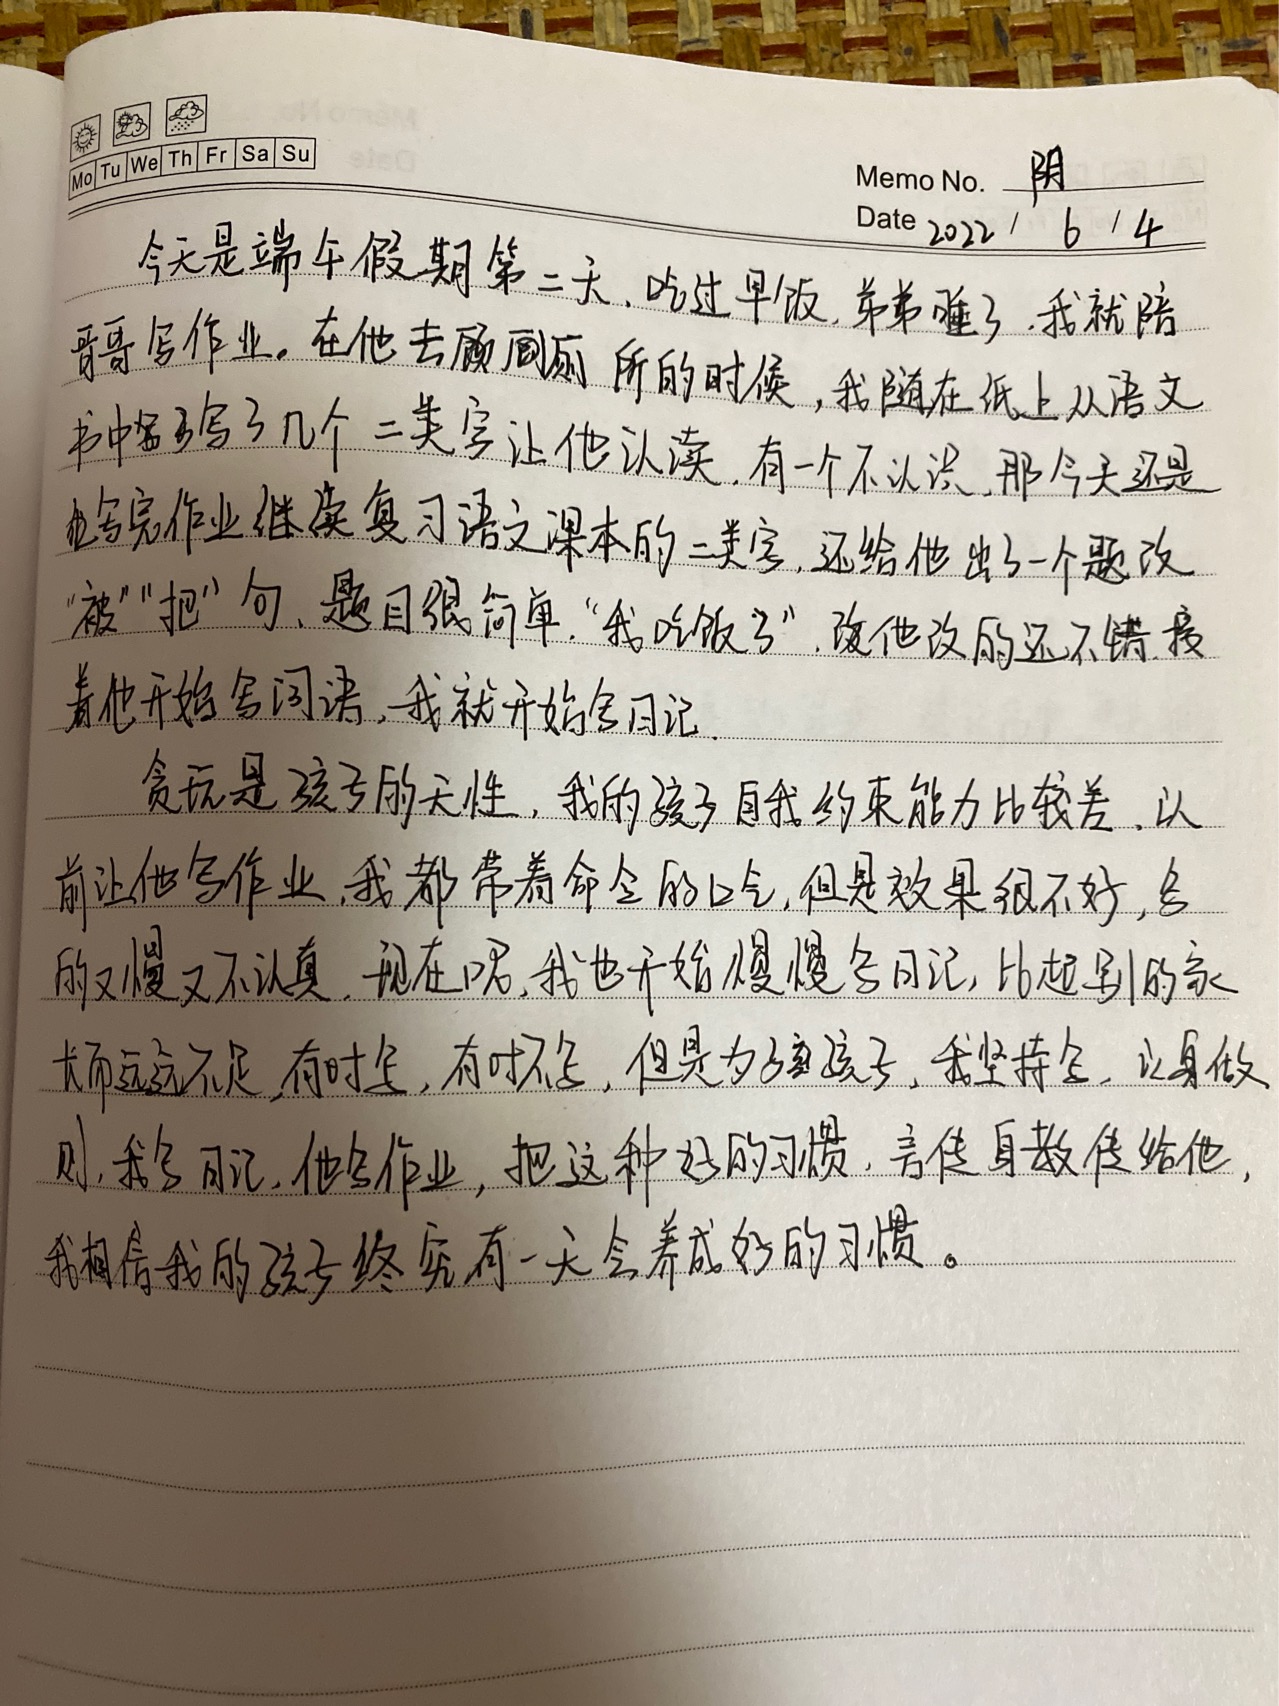 Mo Tu We Th Fr Sa Su
Memo No. 阴
Date 2022 / 6 / 4
今天是端午假期第二天、吃过早饭,弟弟睡了,我就陪
哥哥写作业。在他去厕所的时候,我随在纸上从语文
书中写了几个二类字让他认读,有一个不认识,那今天还是
他写完作业继续复习语文课本的二类字,还给他出了一个题改
“被”“把”句、题目很简单,“我吃饭了”,改他改的还不错,接
着他开始写词语,我就开始写日记.
贪玩是孩子的天性,我的孩子自我约束能力比较差,以
前让他写作业,我都带着命令的口气,但是效果很不好,写
的又慢又不认真,现在呢,我也开始慢慢写日记,比起别的家
长而远远不足,有时写,有时不写,但是为了孩子,我坚持写,以身做
则,我写日记,他写作业,把这种好的习惯,言传身教传给他,
我相信我的孩子终究有一天会养成好的习惯。